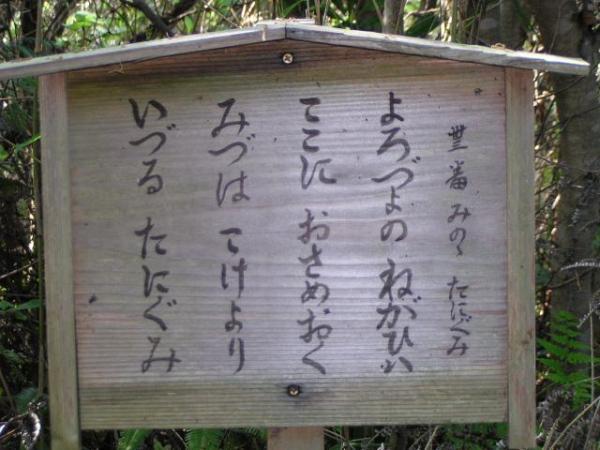 卅三番 みのゝ たにぐみ
よろづよの ねがひハ
ここに おさめおく
みづは こけより
いづる たにぐみ